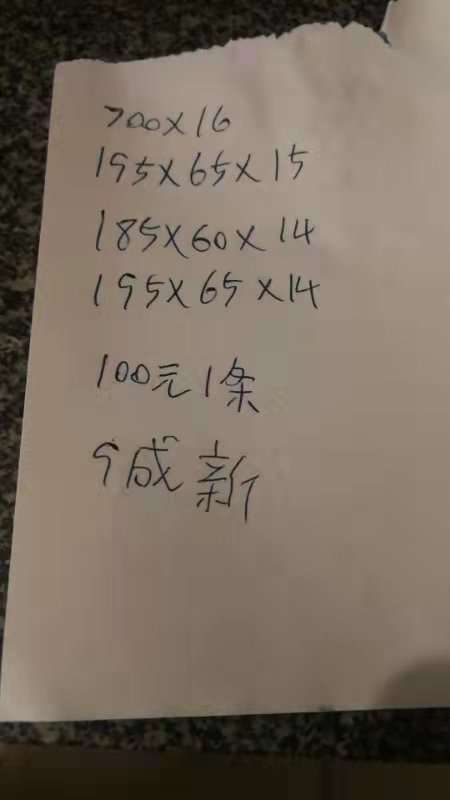 700×16
195×65×15
185×60×14
195×65×14
100元1条
9成新